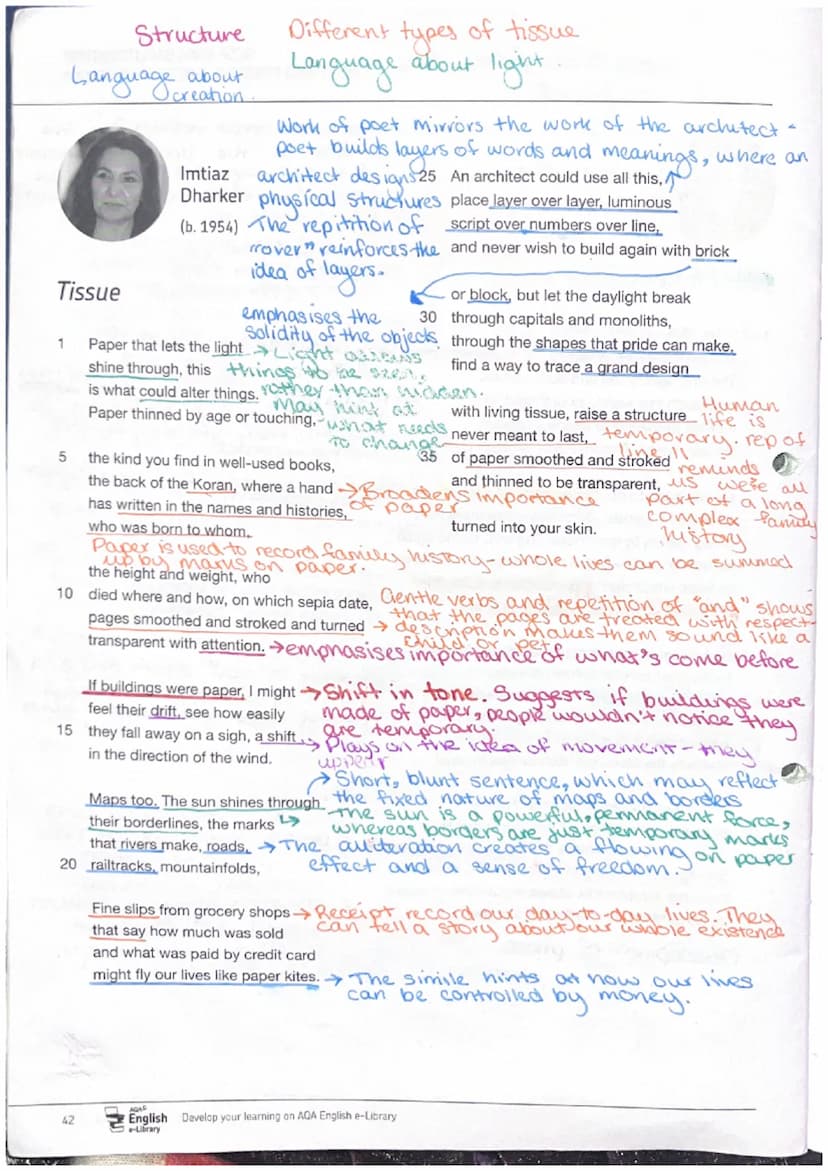 Structure
Different types of tissue
Language about light.
Language about
creation.
Work of poet mirrors the work of the architect -
poet builds layers of words and meanings, where an
architect designs
physical structures
The repitition of
"over" reinforces the
idea of layers.
Imtiaz
Dharker
(b. 1954)
Tissue
1 Paper that lets the light
shine through, this
is what could alter things.
Paper thinned by age or touching,
→ Light allows
things to be seen,
rather than hidden.
May hint at
what needs
to change
5 the kind you find in well-used books,
the back of the Koran, where a hand
has written in the names and histories,
who was born to whom,
→ Broadens importance
of paper
Paper is used to record family history - whole lives can be summed
up by marks on paper.
the height and weight, who
10 died where and how, on which sepia date,
pages smoothed and stroked and turned
transparent with attention.
Gentle verbs and repetition of "and" shows
that the pages are treated with respect-
→ description makes them sound like a
child or pet
→ emphasises importance of what's come before
If buildings were paper, I might
feel their drift, see how easily
15 they fall away on a sigh, a shift
in the direction of the wind.
→ Shift in tone. Suggests if buildings were
made of paper, people wouldn't notice they
are temporary.
→ Plays on the idea of movement - they
Maps too. The sun shines through
their borderlines, the marks
that rivers make, roads,
20 railtracks, mountainfolds,
→ Short, blunt sentence, which may reflect
the fixed nature of maps and borders
The sun is a powerful, permanent force,
whereas borders are just temporary marks
on paper
→ The alliteration creates a flowing
effect and a sense of freedom.
Fine slips from grocery shops
that say how much was sold
and what was paid by credit card
might fly our lives like paper kites.
→ Receipt record our day-to-day lives. They
can tell a story about our whole existence
→ The simile hints at how our lives
can be controlled by money.
25 An architect could use all this,
place layer over layer, luminous
script over numbers over line,
and never wish to build again with brick
emphasises the
solidity of the objects
or block, but let the daylight break
30 through capitals and monoliths,
through the shapes that pride can make,
find a way to trace a grand design
with living tissue, raise a structure
never meant to last,
35 of paper smoothed and stroked
and thinned to be transparent,
turned into your skin.
Human
life is
temporary. rep of
line 11
reminds
us we're all
part of a long
complex family
history
42
AQA
English
e-Library
Develop your learning on AQA English e-Library